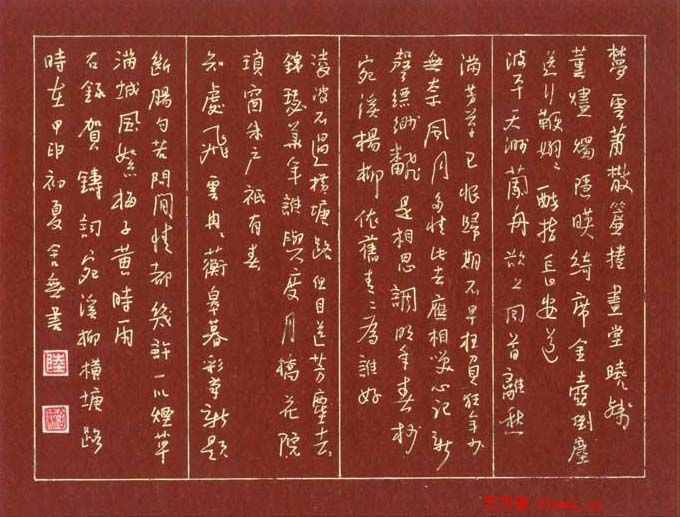 夢雲蕭散簾捲畫堂曉殘
薰燼燭隱暎綺席金壺倒塵
送行鞭嫋々醉指長安道
波平天渺蘭舟欲上回首離愁
滿芳草已恨歸期不早枉負狂年少
無奈風月多情此去應相笑心記新
聲縹緲翻是相思調明年春杪
宛溪楊柳依舊青々為誰好
淩波不過橫塘路但目送芳塵去
錦瑟華年誰與度月橋花院
瑣窗朱戶祇有春
知處飛雲冉々蘅皋暮彩筆新題
斷腸句若問閒情都幾許一川煙草
滿城風絮梅子黃時雨
右錄賀鑄詞宛溪柳橫塘路
時在甲申初夏舍無書
陸